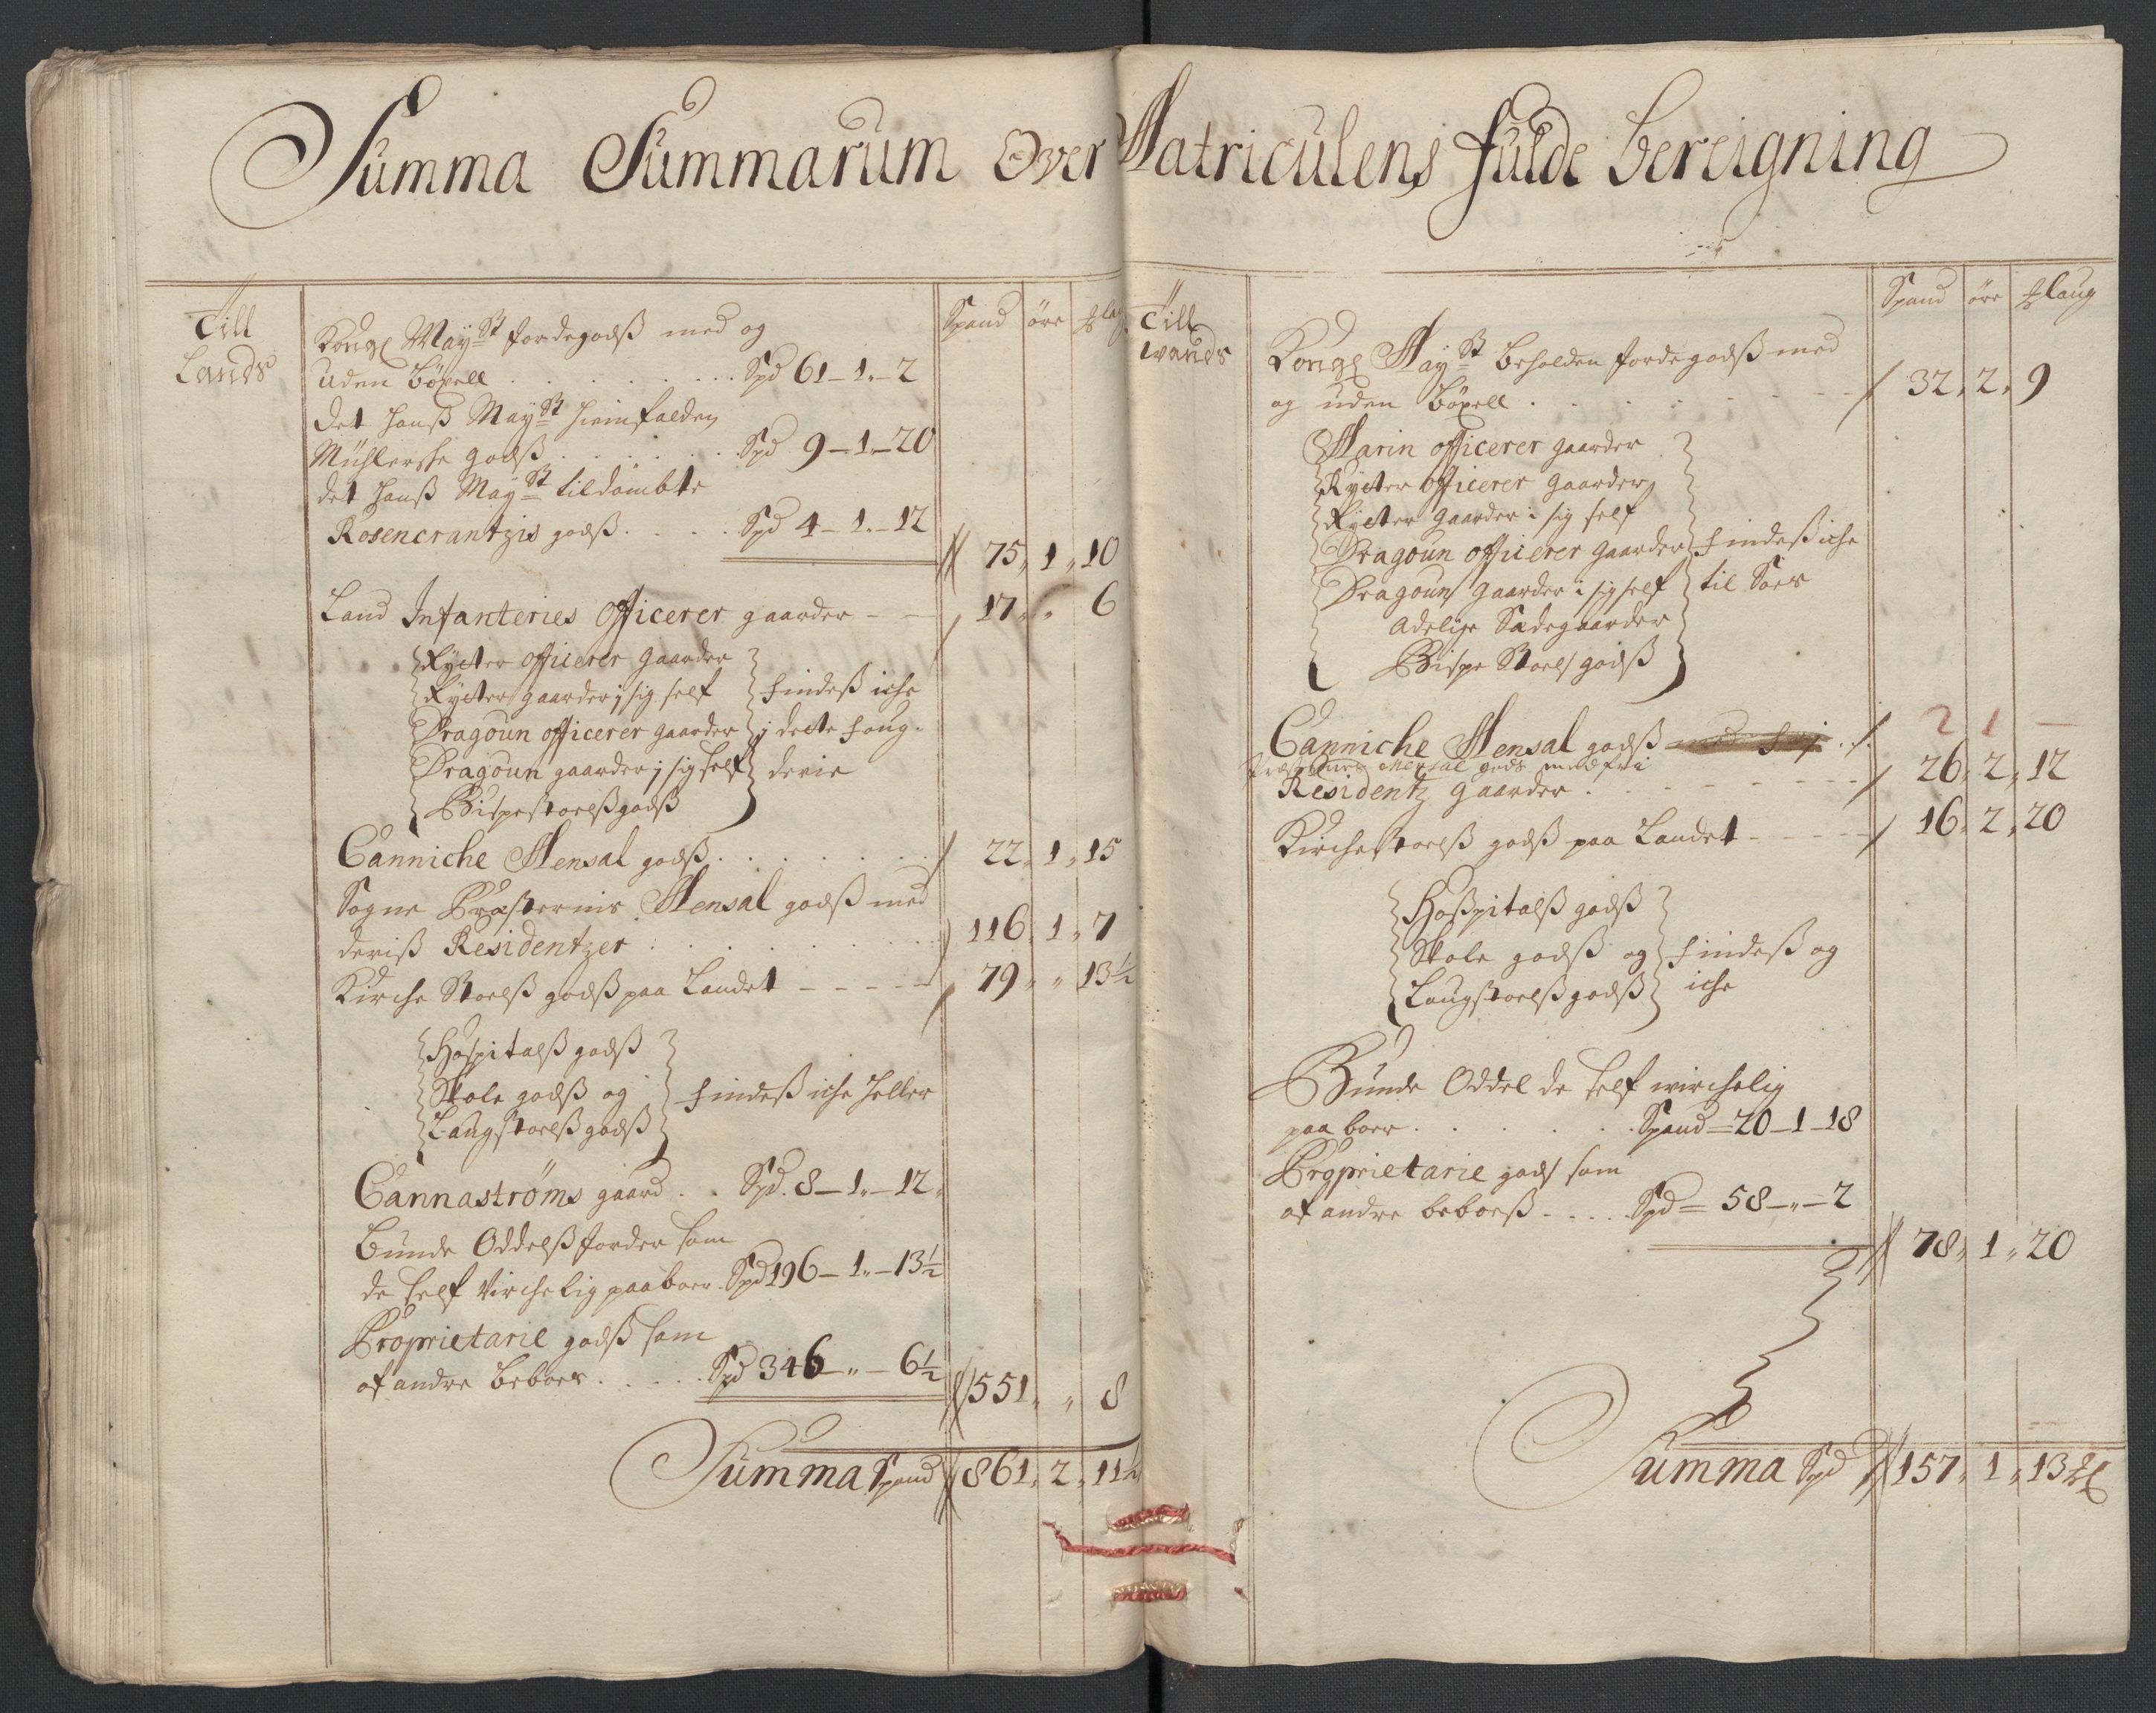 Summa Summarum Over Matriculens fulde bereigning
Till
Lands
Spand øre
Kongl Mayst Jordegodß med og
uden böxell . . . . . . Spd 61 - 1. - 2
det Hanß Mayst hiemfalden
Mühlerske godß . . . . . Spd 9 - 1 - 20
det Hanß Mayst tildömbte
Rosencrantzis godß . . . . Spd 4 - 1. - 12
75 „ 1 „ 10
Land Infanteries Officerer gaarder - - 17 „ „ 6
Rytter officerer gaarder
Rytter gaarder i sig self
Dragoun officerer gaarder
Dragoun gaarder i sig self
Bispestoelß godß
findeß iche
i dette foug-
derie
Canniche Mensal godß . . . . . . 22 „ 1 „ 15
Sogne Præsternis Mensal godß med
deriß Residentzer . . . . . . . 116 „ 1 „ 7
Kirche Stoelß godß paa Landet - - - - - 79 „ „ 13½
Hospitalß godß
Skole godß og
Laugstoelß godß
findeß iche heller
Cannastrøms gaard . . Spd. 8 - 1. - 12.
Bunde Oddelß Jorder som
de self Virchelig paaboer . Spd 196 - 1„ - 13½
Proprietarie godß som
af andre beboes . . . . . Spd 346 - „ - 6½
551 „ „ 8
Summa Spand 861 „ 2 „ 11½
Till
wands
Spand øre Laug
Kongl Mayst beholden Jordegodß med
og uden böxell . . . . . . . 32 „ 2 „ 9
Marin officerer gaarder
Rytter Officerer gaarder
Rytter gaarder i sig self
Dragoun officerer gaarder
Dragoun gaarder i sig self
Adelige Sædegaarder
Bispe Stoels godß
findeß iche
til Søes
Canniche Mensal godß . . 2 1 -
Præsternes Mensal gods med fri
Residentz gaarder . . . . . . 26 „ 2 „ 12
Kirchestoelß godß paa Landet - - - - - 16 „ 2 „ 20
Hoßpitalß godß
Skole godß og
Laugstoelß godß
findeß og
iche
Bunde Oddel de self wirchelig
paa boer . . . . . . Spand = 20 - 1 - 18
Proprietarie gods som
af andre beboeß . . . . Spd = 58 - „ - 2
78 „ 1 „ 20
Summa Spd 157 „ 1 „ 13